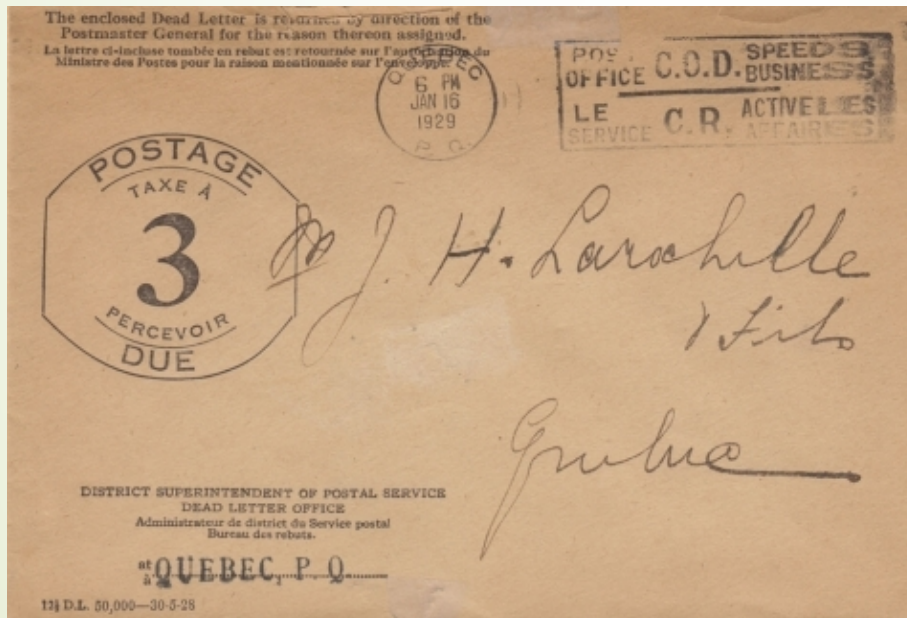 The enclosed Dead Letter is returned by direction of the
Postmaster General for the reason thereon assigned.
La lettre ci-incluse tombée en rebut est retournée sur l'autorisation du
Ministre des Postes pour la raison mentionnée sur l'enveloppe.
QUEBEC
6 PM
JAN 16
1929
P Q
POST OFFICE C.O.D. SPEEDS BUSINESS
LE SERVICE C.R. ACTIVE LES AFFAIRES
POSTAGE
TAXE À
3
PERCEVOIR
DUE
M J. H. Larochelle
& Fils
Quebec
DISTRICT SUPERINTENDENT OF POSTAL SERVICE
DEAD LETTER OFFICE
Administrateur de district du Service postal
Bureau des rebuts.
at
à QUEBEC, P. Q.
12½ D.L. 50,000—30-5-28